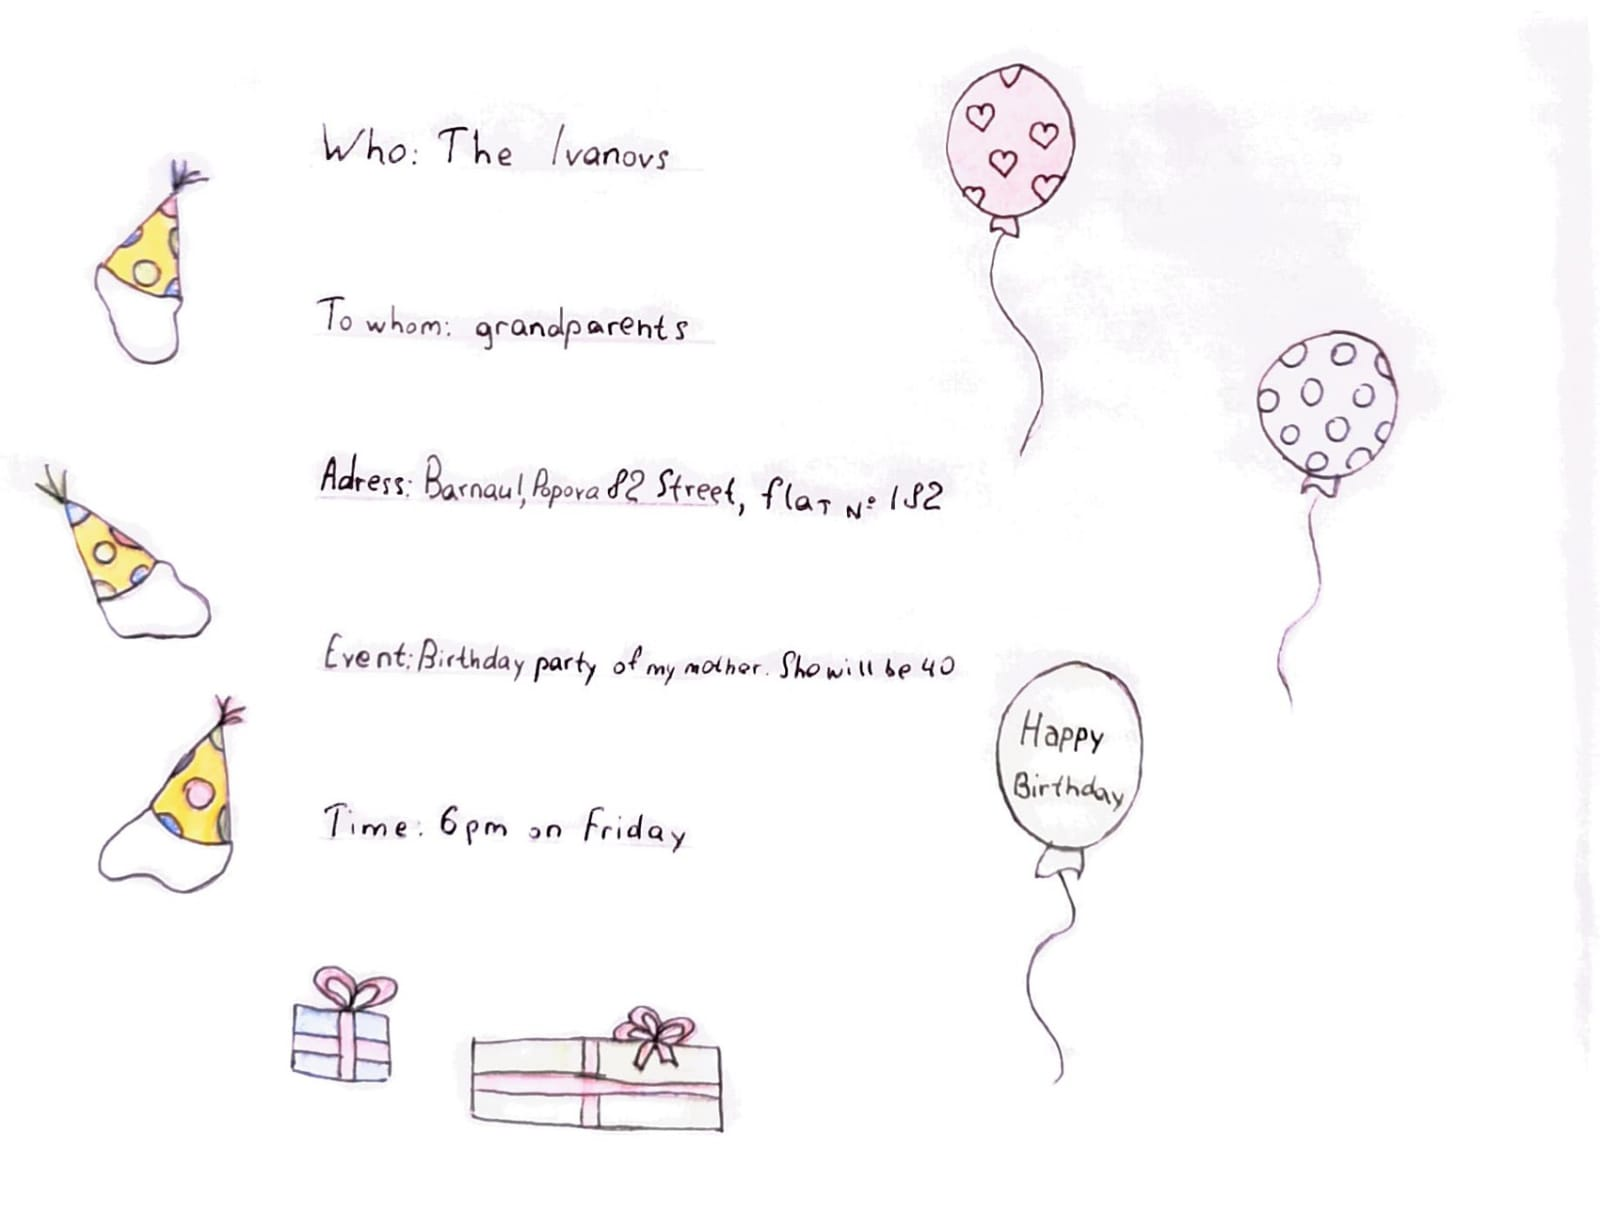 Who: The Ivanovs
To whom: grandparents
Adress: Barnaul, Popova 82 Street, flat № 182
Event: Birthday party of my mother. She will be 40
Happy
Birthday
Time: 6pm on Friday